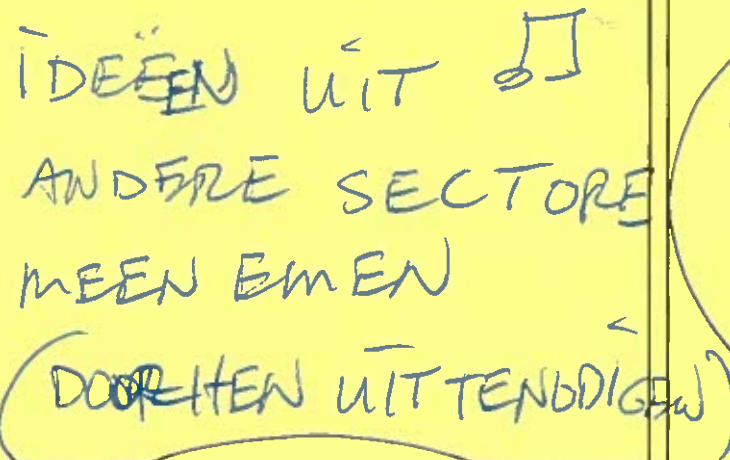 IDEEËN UIT
ANDERE SECTORE
MEENEMEN
(DOOR HEN UIT TE NODIGEN)